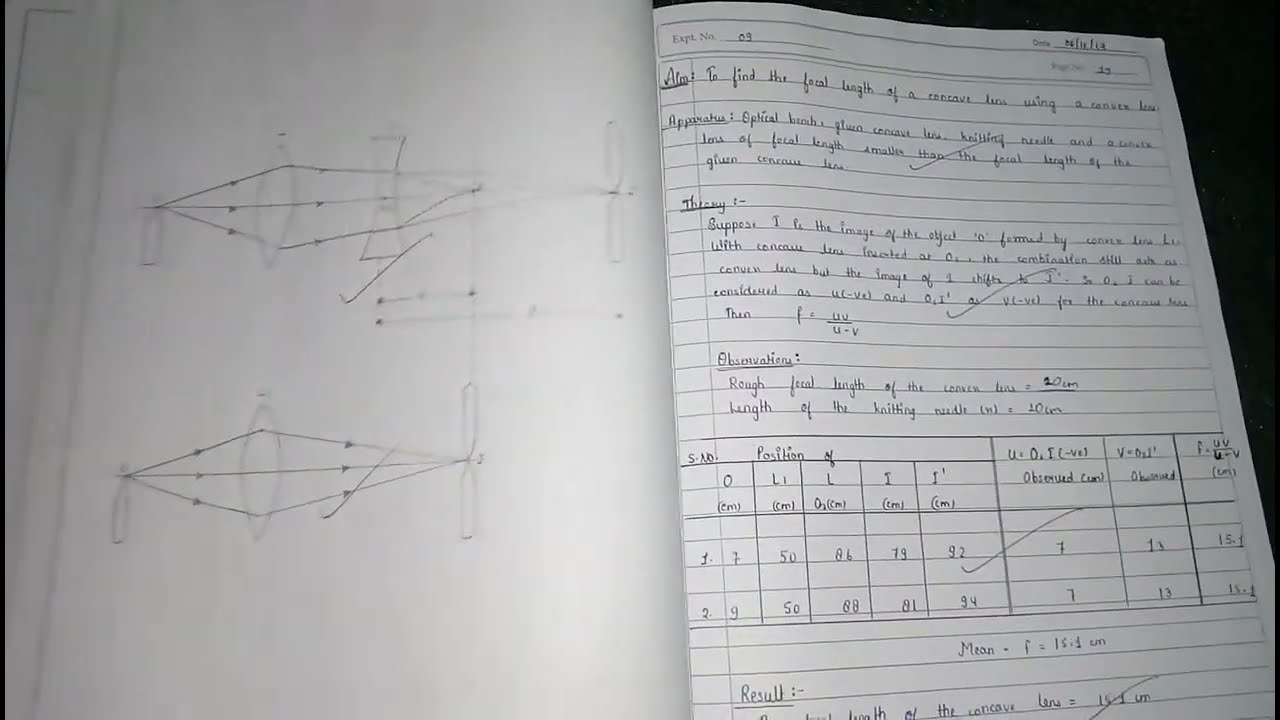 Expt. No. 09
Date 06/11/19
Page No. 19
Aim: To find the focal length of a concave lens using a convex lens
Apparatus: Optical bench, given concave lens, knitting needle and a convex
lens of focal length smaller than the focal length of the
given concave lens
Theory :-
Suppose I is the image of the object 'o' formed by convex lens L1.
With concave lens inserted at O2, the combination still acts as
convex lens but the image of I shifts to I'. So O2 I can be
considered as u(-ve) and O2I' as v(-ve) for the concave lens
Then f = uv/u-v
Observation:
Rough focal length of the convex lens = 20cm
Length of the knitting needle (n) = 20cm
S.NO. Position of U = O2 I (-ve) V = O2I' f = uv/u-v
O L1 L I I' Observed (cm) Observed (cm)
(cm) (cm) O2(cm) (cm) (cm)
1. 7 50 86 79 92 7 13 15.1
2. 9 50 88 81 94 7 13 15.1
Mean - f = 15.1 cm
Result :-
focal length of the concave lens = 15.1 cm